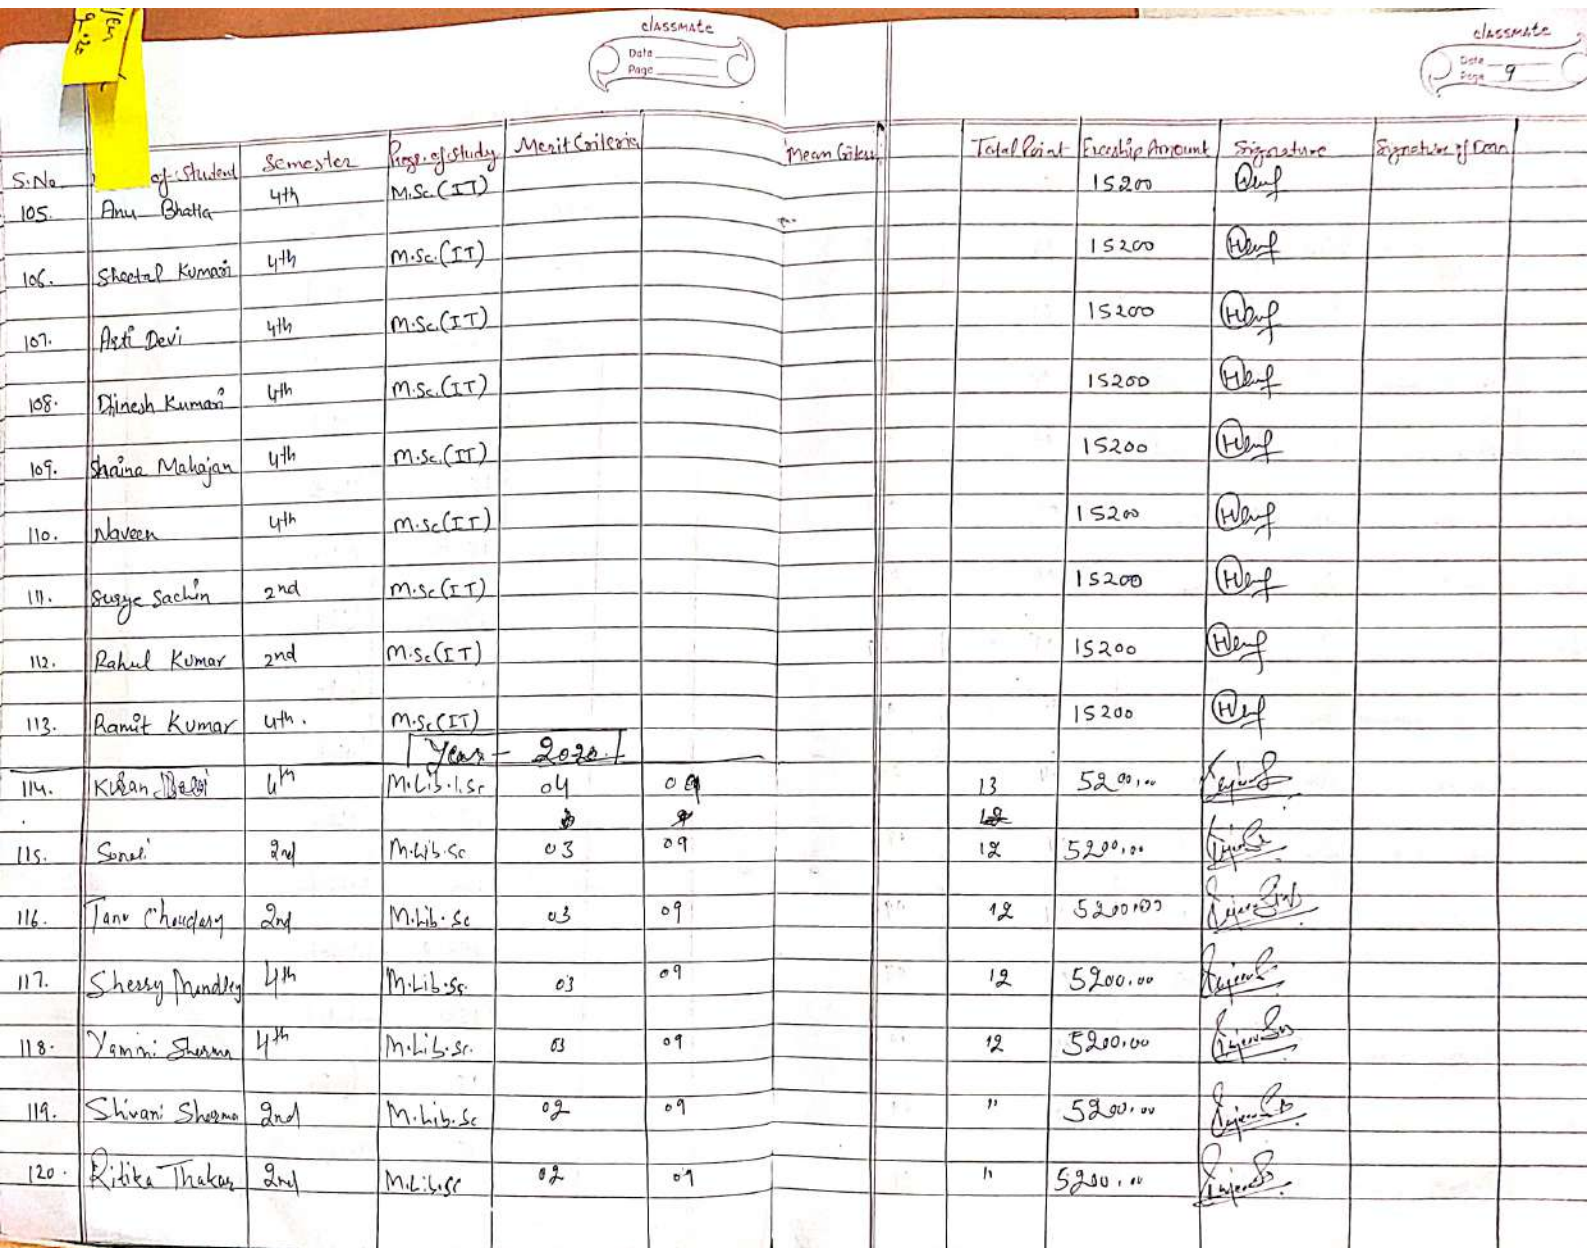 classmate
Date
Page
classmate
Date
Page 9
S.No. of Student Semester Prog. of Study Merit Criteria Mean Criteria Total Point Freeship Amount Signature Signature of Dean
105. Anu Bhatia 4th M.Sc.(IT) 15200
106. Sheetal Kumari 4th M.Sc.(IT) 15200
107. Arti Devi 4th M.Sc.(IT) 15200
108. Dinesh Kumari 4th M.Sc.(IT) 15200
109. Shaina Mahajan 4th M.Sc.(IT) 15200
110. Naveen 4th M.Sc(IT) 15200
111. Surye Sachin 2nd M.Sc(IT) 15200
112. Rahul Kumar 2nd M.Sc(IT) 15200
113. Ramit Kumar 4th. M.Sc(IT) 15200
Year - 2020
114. Kiran 4th M.Lib.I.Sc 04 09 13 5200.00
115. 2nd M.Lib.Sc 03 09 12 5200.00
116. Tanu Choudary 2nd M.Lib.Sc 03 09 12 5200.00
117. Sherry 4th M.Lib.Sc. 03 09 12 5200.00
118. Yamini Sharma 4th M.Lib.Sc. 03 09 12 5200.00
119. Shivani Sharma 2nd M.Lib.Sc 02 09 " 5200.00
120. Ritika Thakur 2nd M.Lib.Sc 02 09 " 5200.00